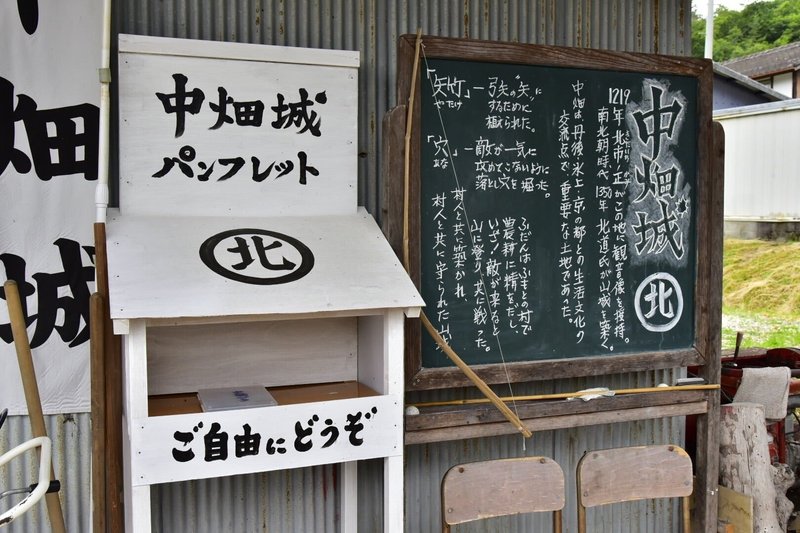 中畑城
中畑城
パンフレット
北
ご自由にどうぞ
中畑城
北
1219年北市正がこの地に観音像を護持。
南北朝時代1350年北道氏が山城を築く。
中畑は丹後・氷上・京の都との生活文化の
交流点で、重要な土地であった。
「矢竹」ー弓矢の"矢"に
やだけ
するために
植えられた。
「穴」ー敵が一気に
あな
攻めてこないように
落とし穴を掘った。
ふだんはふもとの村で
農耕に精をだし
いざ!敵が来ると
山に登り、共に戦った。
村人と共に築かれ、
村人と共に守られた山城